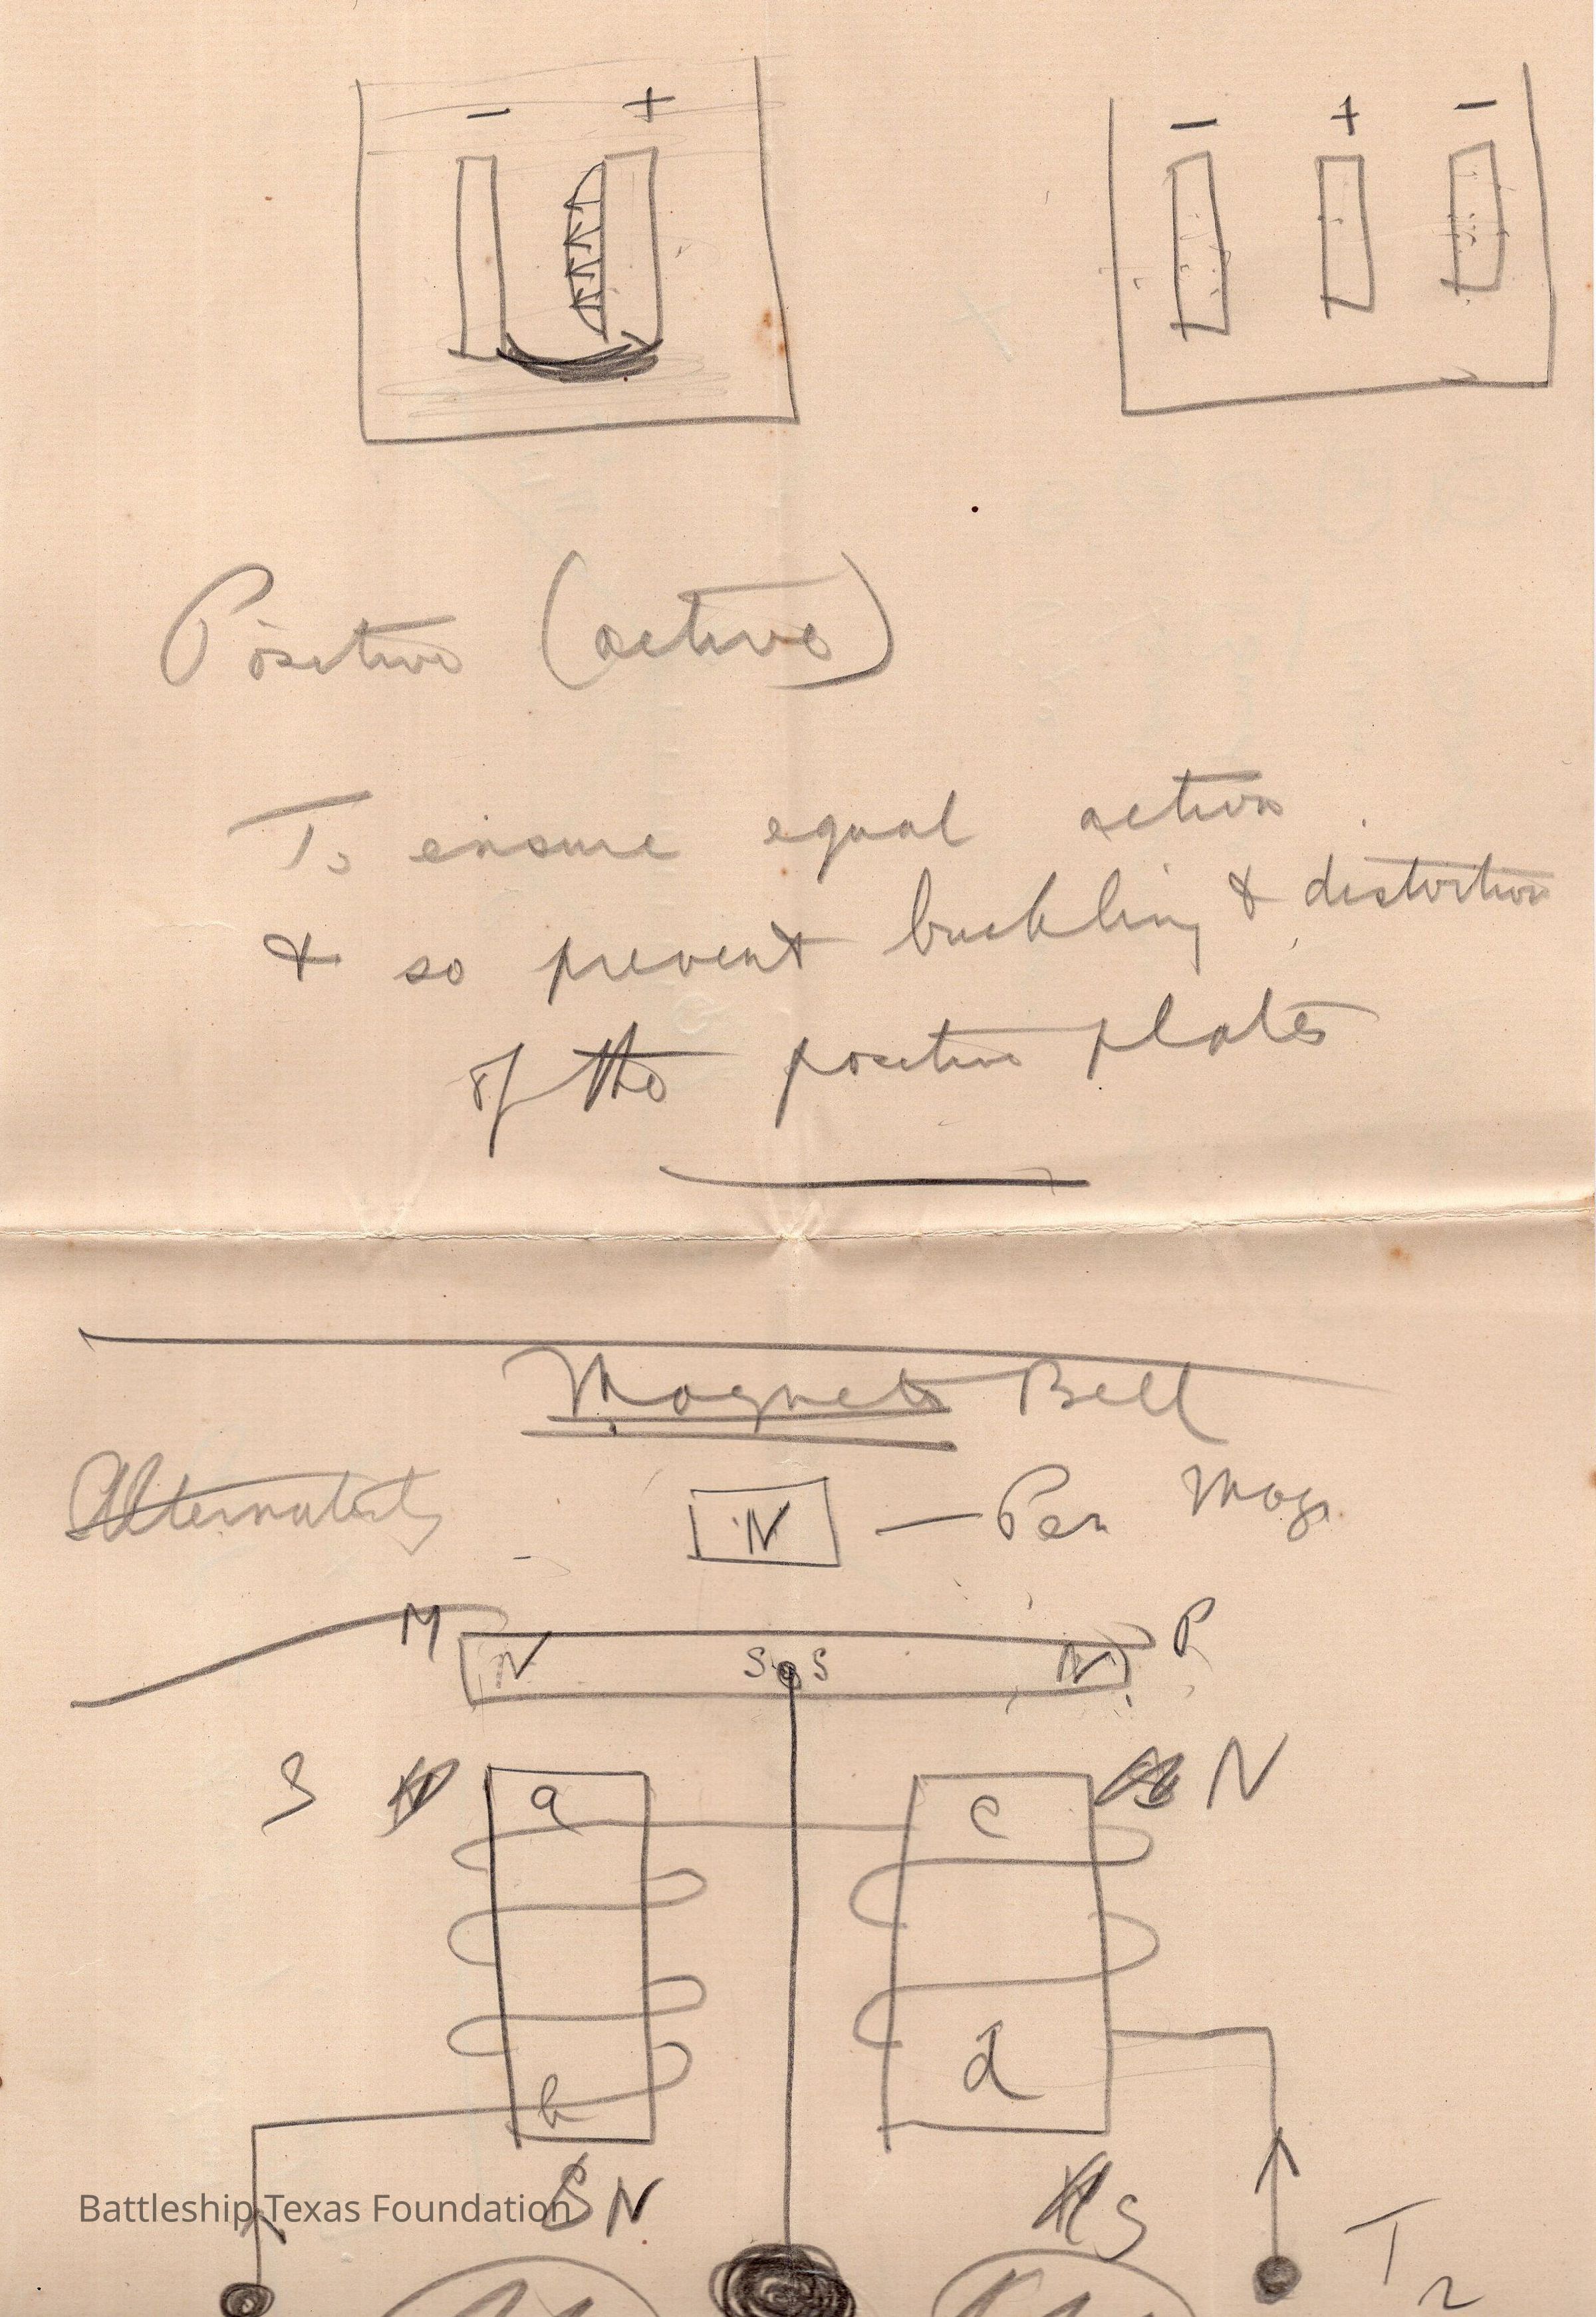 - +
- + -
Positive (active)
To ensure equal action
& so prevent buckling & distortion
of the positive plates
Magneto Bell
N — Per Mag.
M N S S N P
S a c N
b d
S N S
Battleship Texas Foundation
T2